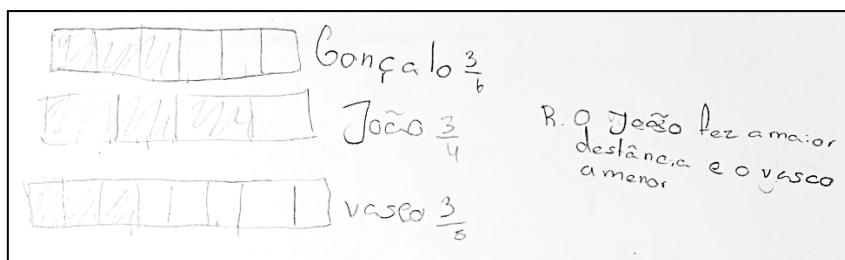 Gonçalo 3/6
João 3/4
vasco 3/8
R. O João fez a maior
distância e o vasco
a menor